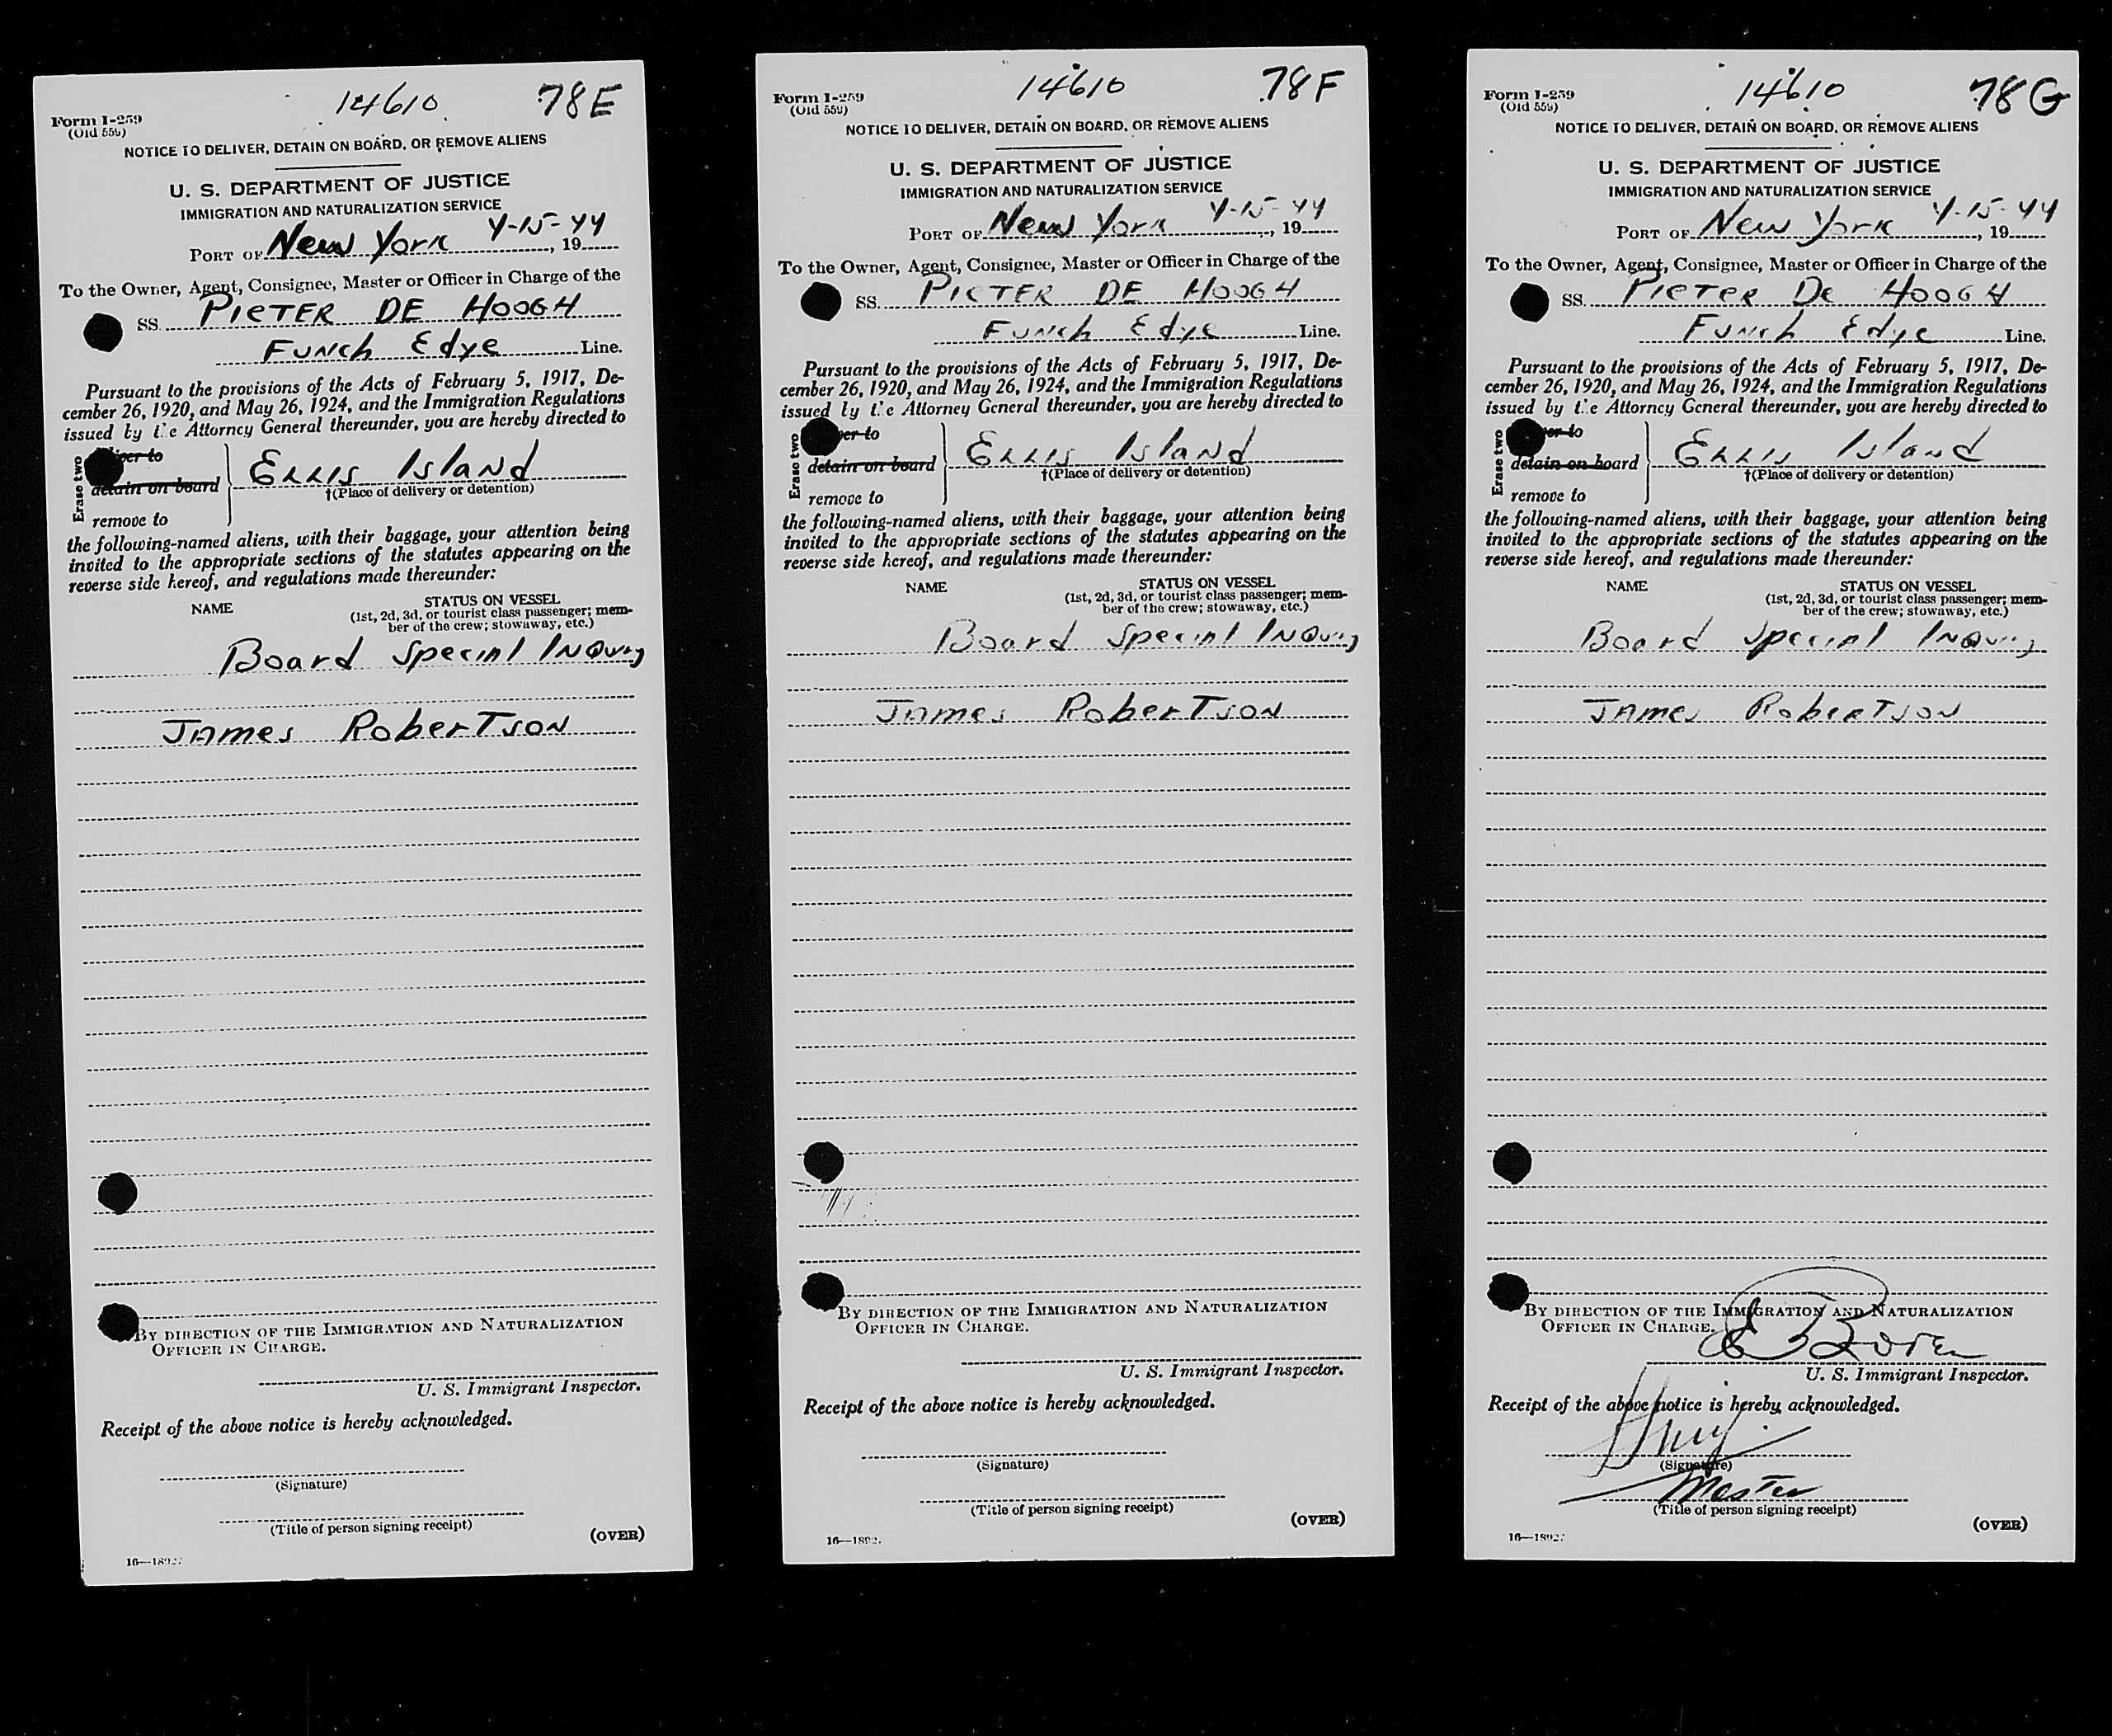 14610 78E
Form I-259
(Old 559)
NOTICE TO DELIVER, DETAIN ON BOARD, OR REMOVE ALIENS
U. S. DEPARTMENT OF JUSTICE
IMMIGRATION AND NATURALIZATION SERVICE
PORT OF New York 4-15-44, 19
To the Owner, Agent, Consignee, Master or Officer in Charge of the
SS. PIETER DE HOOGH
Funch Edye Line.
Pursuant to the provisions of the Acts of February 5, 1917, De-
cember 26, 1920, and May 26, 1924, and the Immigration Regulations
issued by the Attorney General thereunder, you are hereby directed to
Erase two
deliver to
detain on board
remove to
Ellis Island
†(Place of delivery or detention)
the following-named aliens, with their baggage, your attention being
invited to the appropriate sections of the statutes appearing on the
reverse side hereof, and regulations made thereunder:
NAME STATUS ON VESSEL
(1st, 2d, 3d, or tourist class passenger; mem-
ber of the crew; stowaway, etc.)
Board Special Inquiry
James Robertson
BY DIRECTION OF THE IMMIGRATION AND NATURALIZATION
OFFICER IN CHARGE.
U. S. Immigrant Inspector.
Receipt of the above notice is hereby acknowledged.
(Signature)
(Title of person signing receipt)
(OVER)
14610 78F
Form I-259
(Old 559)
NOTICE TO DELIVER, DETAIN ON BOARD, OR REMOVE ALIENS
U. S. DEPARTMENT OF JUSTICE
IMMIGRATION AND NATURALIZATION SERVICE
PORT OF New York 4-15-44, 19
To the Owner, Agent, Consignee, Master or Officer in Charge of the
SS. PIETER DE HOOGH
Funch Edye Line.
Pursuant to the provisions of the Acts of February 5, 1917, De-
cember 26, 1920, and May 26, 1924, and the Immigration Regulations
issued by the Attorney General thereunder, you are hereby directed to
Erase two
deliver to
detain on board
remove to
Ellis Island
†(Place of delivery or detention)
the following-named aliens, with their baggage, your attention being
invited to the appropriate sections of the statutes appearing on the
reverse side hereof, and regulations made thereunder:
NAME STATUS ON VESSEL
(1st, 2d, 3d, or tourist class passenger; mem-
ber of the crew; stowaway, etc.)
Board Special Inquiry
James Robertson
BY DIRECTION OF THE IMMIGRATION AND NATURALIZATION
OFFICER IN CHARGE.
U. S. Immigrant Inspector.
Receipt of the above notice is hereby acknowledged.
(Signature)
(Title of person signing receipt)
(OVER)
14610 78G
Form I-259
(Old 559)
NOTICE TO DELIVER, DETAIN ON BOARD, OR REMOVE ALIENS
U. S. DEPARTMENT OF JUSTICE
IMMIGRATION AND NATURALIZATION SERVICE
PORT OF New York 4-15-44, 19
To the Owner, Agent, Consignee, Master or Officer in Charge of the
SS. Pieter De HOOGH
Funch Edye Line.
Pursuant to the provisions of the Acts of February 5, 1917, De-
cember 26, 1920, and May 26, 1924, and the Immigration Regulations
issued by the Attorney General thereunder, you are hereby directed to
Erase two
deliver to
detain on board
remove to
Ellis Island
†(Place of delivery or detention)
the following-named aliens, with their baggage, your attention being
invited to the appropriate sections of the statutes appearing on the
reverse side hereof, and regulations made thereunder:
NAME STATUS ON VESSEL
(1st, 2d, 3d, or tourist class passenger; mem-
ber of the crew; stowaway, etc.)
Board Special Inquiry
James Robertson
BY DIRECTION OF THE IMMIGRATION AND NATURALIZATION
OFFICER IN CHARGE.
U. S. Immigrant Inspector.
Receipt of the above notice is hereby acknowledged.
(Signature)
Master
(Title of person signing receipt)
(OVER)